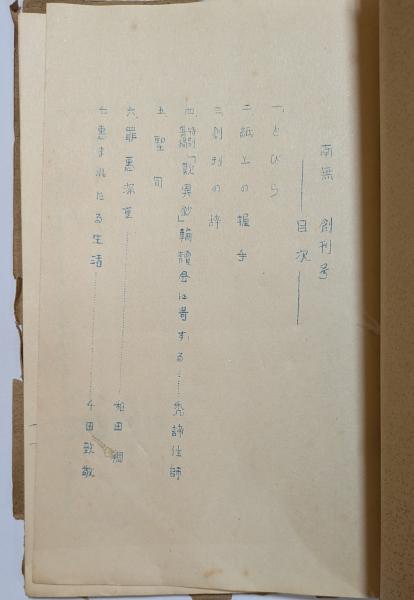 南無 創刊号
目次
一、とびら
二、紙上の握手
三、創刊の辞
四、特別寄稿「歎異鈔」輪読会に寄する……禿諦住師
五、聖句
六、罪悪深重……和田
七、恵まれたる生活……千田敬